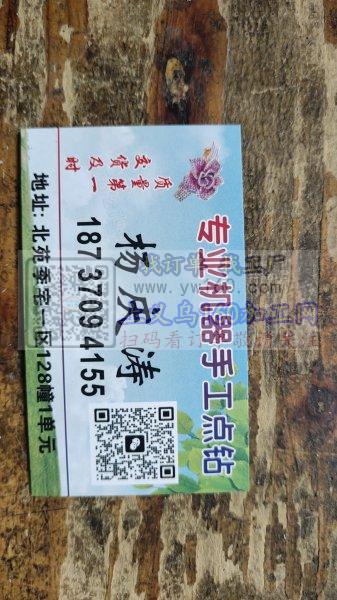 专业机器手工点钻
质量第一
交货及时
杨成涛
18737094155
地址：北苑季宅一区128幢1单元
找订单 找工厂
www.yw
义乌 加工网
扫码看订单